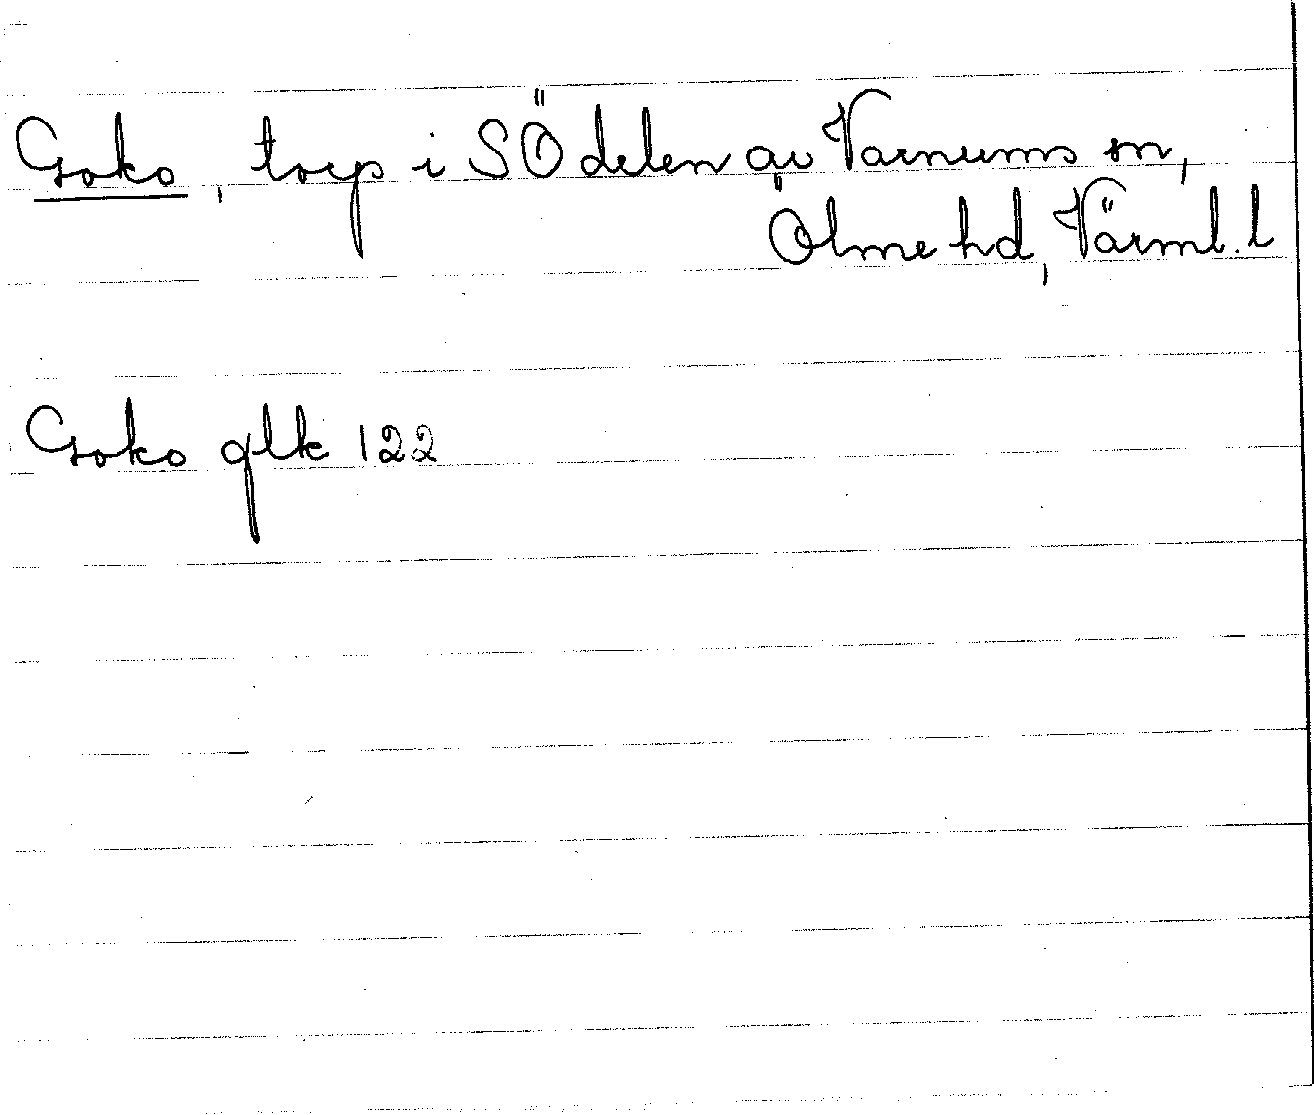 Goko, torp i SÖ delen av Varnums sn,
Ölme hd, Värml. l
Goko glk 122